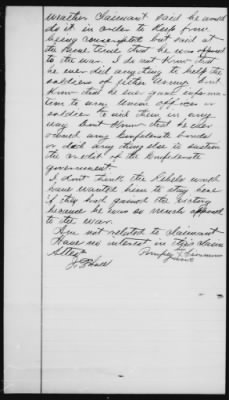 weather Claimant said he would
do it in order to keep from
being conscripted but said at
the same time that he was opposed
to the war. I do not know that
he ever did any thing to help the
soldiers of either army. Dont
know that he ever gave informa
tion to any Union officer or
soldier to aid them in any
way. Dont know that he ever
owned any Confederate bonds
or did any thing else to sustain
the credit of the Confederate
government.
I dont think the Rebels would
have wanted him to stay here
if they had gained the victory
because he was so much opposed
to the war.
Am not related to claimant
Have no interest in this claim
Attest